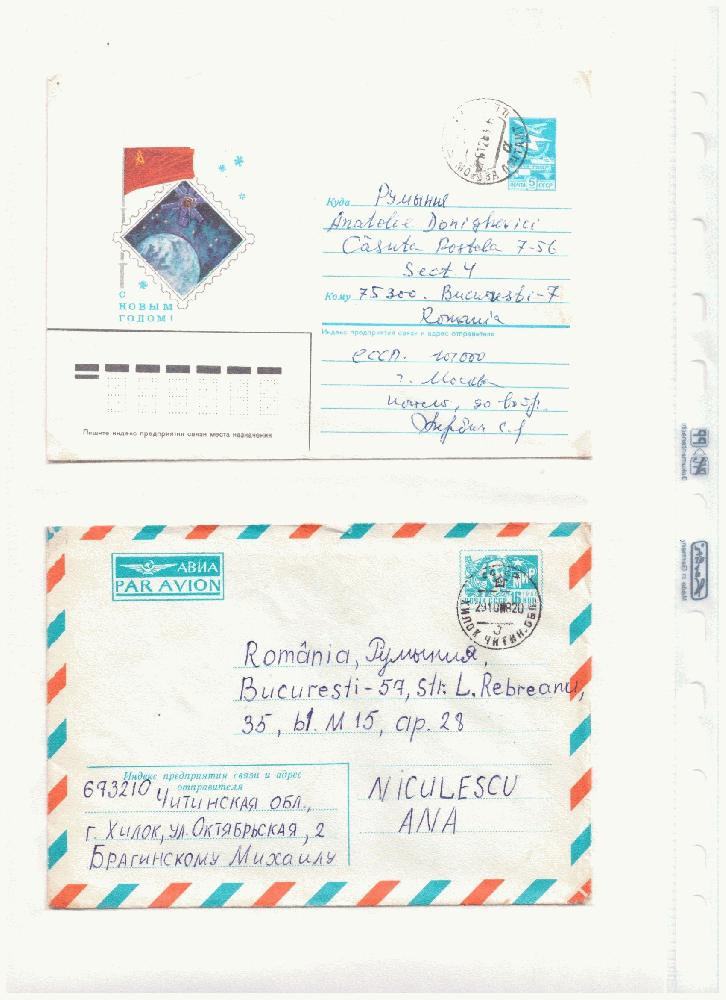 С
НОВЫМ
ГОДОМ!
ПОЧТА 5 СССР
Куда Румыния
Anatolie Donighevici
Căsuta Postala 7-56
Sect 4
Кому 75300. Bucuresti-7
Romania
Индекс предприятия связи и адрес отправителя
СССР. 101000
г. Москва
Пишите индекс предприятия связи места назначения
АВИА
PAR AVION
МИР
ПОЧТА СССР 16 КОП
ХИЛОК ЧИТИН. ОБЛ
România, Румыния,
Bucuresti-57, Str. L. Rebreanu,
35, bl. M 15, ap. 28
Индекс предприятия связи и адрес
отправителя
673210 Читинская обл.,
г. Хилок, ул. Октябрьская, 2
Брагинскому Михаилу
NICULESCU
ANA